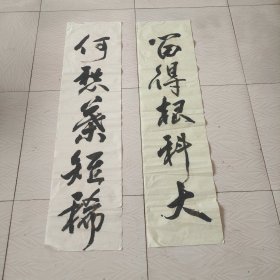 留得根科大
何愁叶短稀